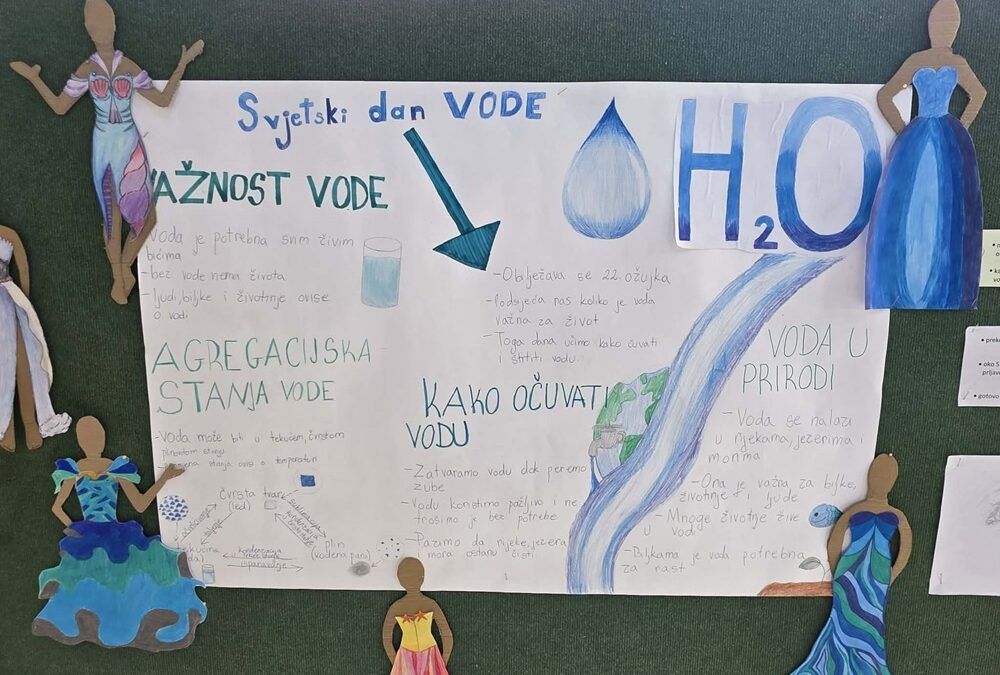 Svjetski dan VODE
H2O
AŽNOST VODE
Voda je potrebna svim živim
bićima
- bez vode nema života
- ljudi, biljke i životinje ovise
o vodi
- Obilježava se 22. ožujka
- Podsjeća nas koliko je voda
važna za život
- Toga dana učimo kako čuvati
i štititi vodu.
AGREGACIJSKA
STANJA VODE
- Voda može biti u tekućem, čvrstom
plinovitom stanju
stanja ovisi o temperaturi
čvrsta tvar
(led)
sublimacija
plin
(vodena para)
kondenzacija
isparavanje
KAKO OČUVATI
VODU
- Zatvaramo vodu dok peremo
zube
- Vodu koristimo pažljivo i ne
trošimo je bez potrebe
- Pazimo da rijeke, jezera
mora ostanu čisti
VODA U
PRIRODI
- Voda se nalazi
u rijekama, jezerima i
morima
- Ona je važna za biljke,
životinje i ljude
- Mnoge životinje žive
u vodi
- Biljkama je voda potrebna
za rast
• prek
• oko S
prljav
• gotovo